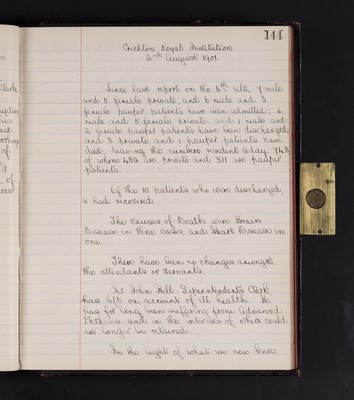 144
Crichton Royal Institution
2nd August 1901
Since last report on the 5th ulto, 7 male
and 5 female private, and 6 male and 3
female pauper patients have been admitted; 2
male and 5 female private, and 1 male and
2 female pauper patients have been discharged;
and 3 private and 1 pauper patients have
died; leaving the numbers resident today 743
of whom 432 are private and 311 are pauper
patients.
Of the 10 patients who were discharged,
had recovered.
The causes of Death were Brain
Disease in three cases, and Heart Disease in
one.
There have been no changes amongst
the attendants or servants.
Mr. John Hill, Superintendents Clerk
has left on account of ill health. He
has for long been suffering from advanced
Phthisis and in the interests of others could
no longer be retained.
In the light of what we now know